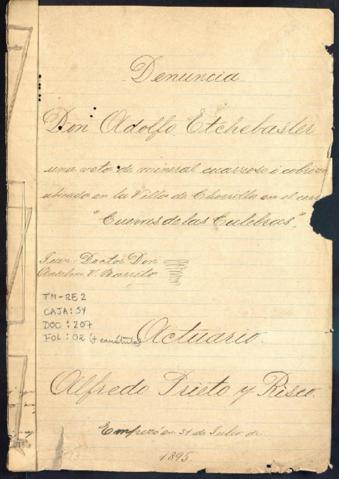 Denuncia
Don Adolfo Etchebaster
una veta de mineral cuarzoso i cobrizo
ubicado en la Villa de Chorrillo en el cerro
"Cuevas de las Culebras".
Juez: Doctor Don
Anselmo V. Barreto
TM-RE2
CAJA: 54
DOC: 207
FOL: 02 (+ carátula)
Actuario.
Alfredo Prieto y Risco.
Empezó en 31 de Julio de
1895